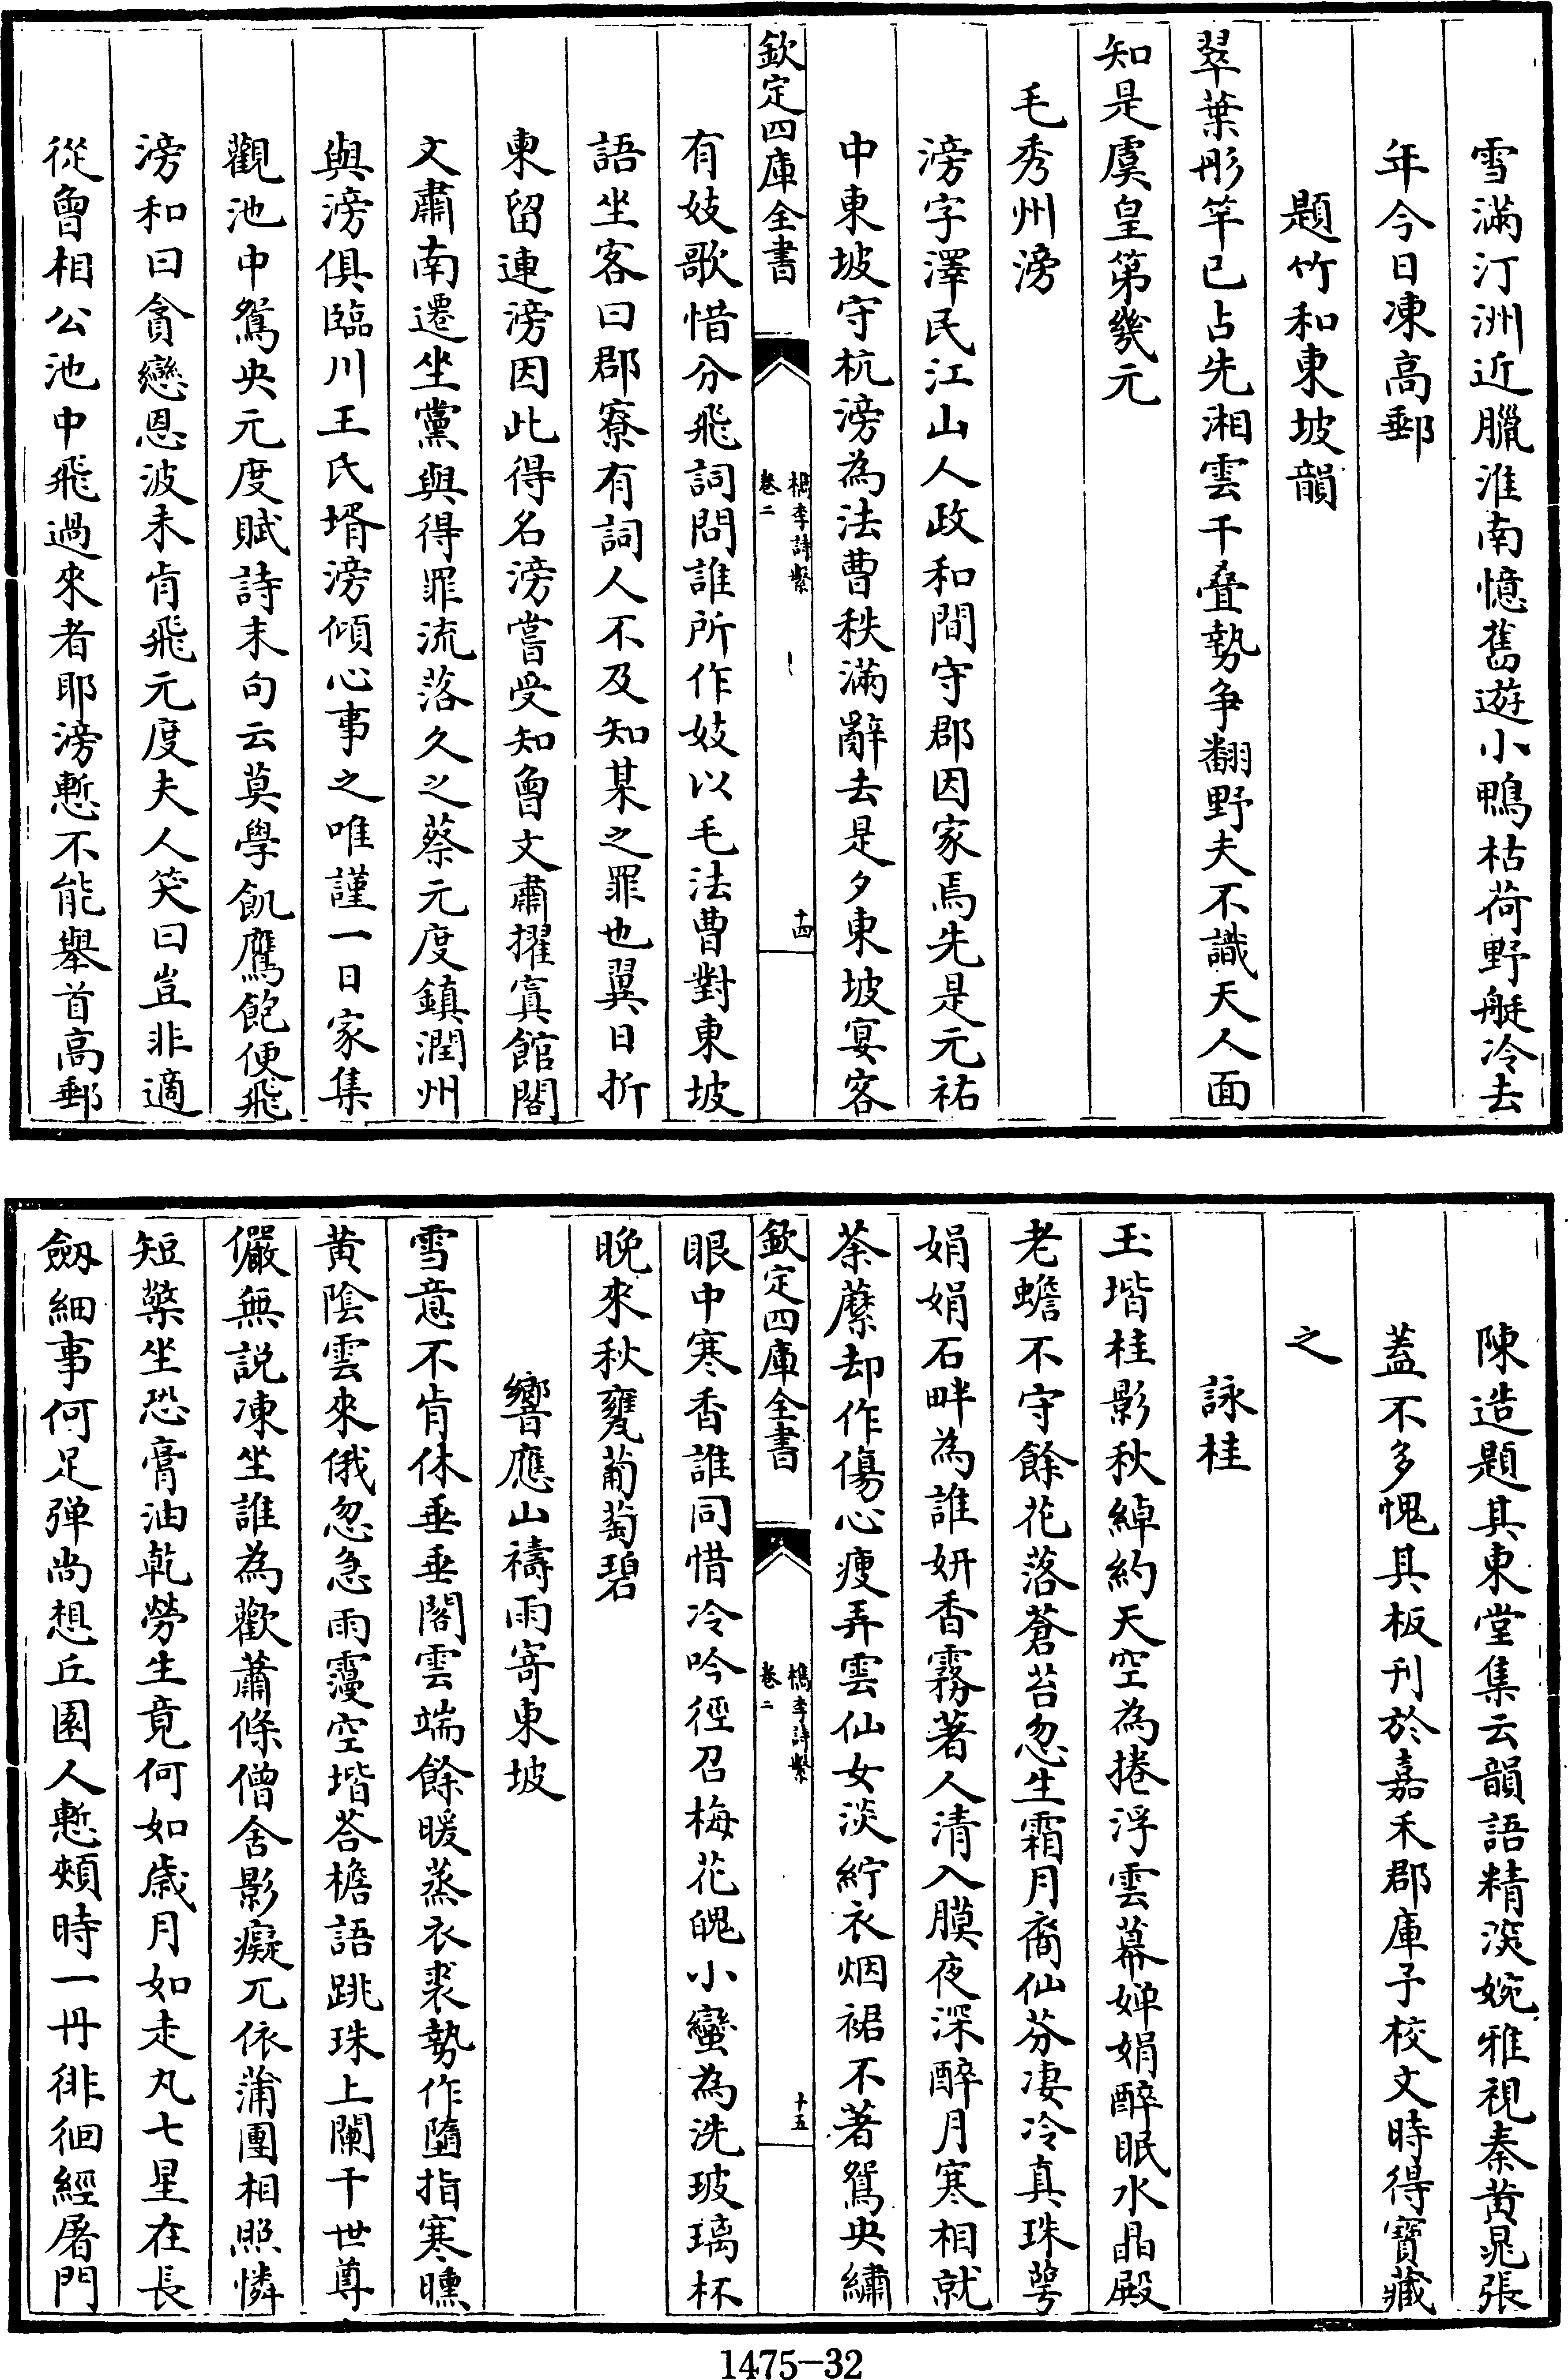 雪滿汀洲近臘淮南憶舊遊小鴨枯荷野艇冷去
年今日凍高郵
題竹和東坡韻
翠葉彤竿已占先湘雲千叠勢争翻野夫不識天人面
知是虞皇第幾元
毛秀州滂
滂字澤民江山人政和間守郡因家焉先是元祐
中東坡守杭滂為法曹秩滿辭去是夕東坡宴客
欽定四庫全書
檇李詩繫
卷二
十四
有妓歌惜分飛詞問誰所作妓以毛法曹對東坡
語坐客曰郡寮有詞人不及知某之罪也翼日折
東留連滂因此得名滂嘗受知曾文肅擢寘館閣
文肅南遷坐黨與得罪流落久之蔡元度鎮潤州
與滂俱臨川王氏壻滂傾心事之唯謹一日家集
觀池中鴛央元度賦詩末句云莫學飢鷹飽便飛
滂和曰貪戀恩波未肯飛元度夫人笑曰豈非適
從曾相公池中飛過來者耶滂慙不能舉首高郵
陳造題其東堂集云韻語精深婉雅視秦黃晁張
蓋不多愧其板刊於嘉禾郡庫予校文時得寶藏
之
詠桂
玉堦桂影秋綽約天空為捲浮雲幕嬋娟醉眠水晶殿
老蟾不守餘花落蒼苔忽生霜月裔仙芬凄冷真珠萼
娟娟石畔為誰妍香霧著人清入膜夜深醉月寒相就
荼蘼却作傷心瘦弄雲仙女淡紵衣烟裙不著鴛央繡
欽定四庫全書
檇李詩繫
卷二
十五
眼中寒香誰同惜冷吟徑召梅花魄小蠻為洗玻璃杯
晚來秋甕葡萄碧
響應山禱雨寄東坡
雪意不肯休垂垂閣雲端餘暖蒸衣裘勢作墮指寒曛
黄陰雲來俄忽急雨霪空堦荅檐語跳珠上闌干世尊
儼無説凍坐誰為歡蕭條僧舍影癡兀依蒲團相照憐
短檠坐恐膏油乾勞生竟何如歲月如走丸七星在長
劔細事何足弹尚想丘園人慙頰時一丹徘徊經屠門
1475-32